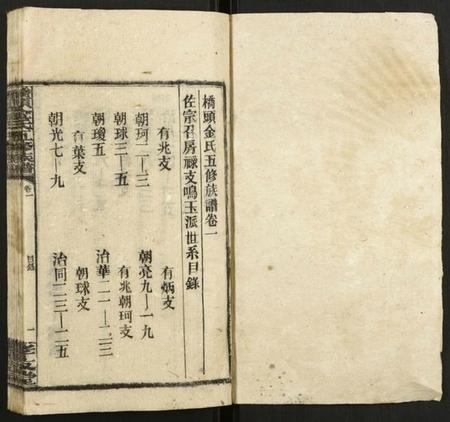 橋頭金氏五修族譜卷一
佐宗召房祿支鳴玉派世系目錄
有兆支
有炳支
朝珂二—三
朝亮九—一九
朝球三—五
有兆朝珂支
朝瓊五
治華二一—二三
有葉支
朝球支
朝光七—九
治同二三—二五
卷一
目錄
一